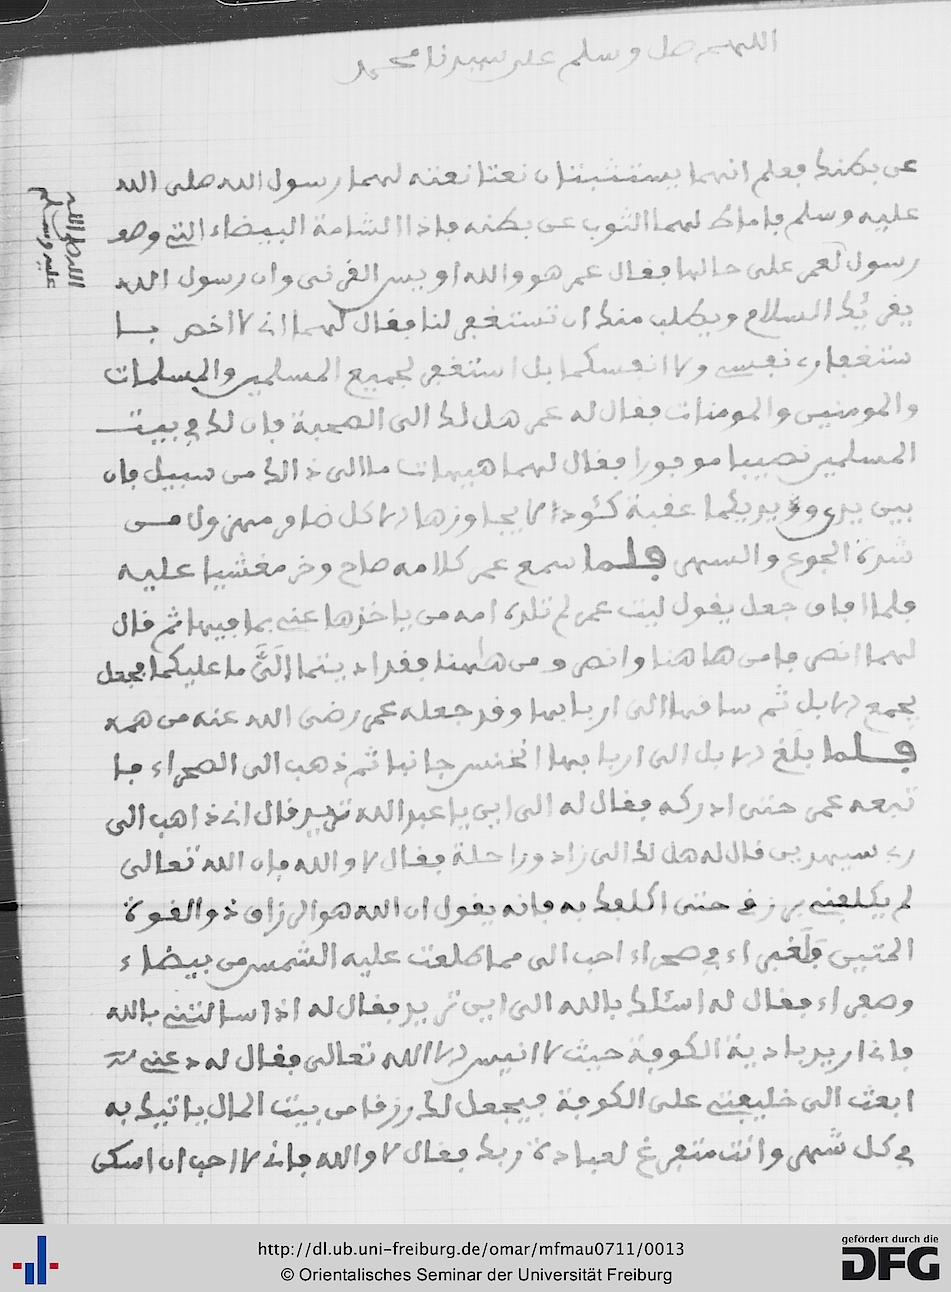 اللهم صل وسلم على سيدنا محمد
عن بطنك فعلم انهما يستثبتان نعتا نعته لهما رسول الله صلى الله
عليه وسلم فاماط لهما الثوب عن بطنه فاذا الشامة البيضاء التي وصف
رسول لعمر على حالها فقال عمر هو والله اويس القرني وان رسول الله
يقرئك السلام ويطلب منك ان تستغفر لنا فقال لهما اني لا اخص با
ستغفاري نفسي ولا انفسكما بل استغفر لجميع المسلمين والمسلمات
والمومنين والمومنات فقال له عمر هل لك الى الصحبة فان لك في بيت
المسلمين نصيبا موفورا فقال لهما هيهات ما الى ذالك من سبيل فان
بين يدي ويديكما عقبة كئودا لا يجاوزها الا كل ضامر مهزول من
شدة الجوع والسهر فلما سمع عمر كلامه صاح وخر مغشيا عليه
فلما افاق جعل يقول ليت عمر لم تلده امه من ياخذها عني بما فيها ثم قال
لهما انص فامن هاهنا وانص ومن هاهنا فقد اديتما الَتي ما عليكما فجعل
يجمع الابل ثم ساقها الى اربابها وقد جعله عمر رضى الله عنه من همه
فلما بلغ الابل الى اربابها انخنس جانبا ثم ذهب الى الصحراء فا
تبعه عمر حتى ادركه فقال له الى اين يا عبد الله تريد قال اني ذاهب الى
ربي سيهدين قال له هل لك الى زاد وراحلة فقال لا والله فان الله تعالى
لم يكلفني برزقي حتى اكلفك به فانه يقول ان الله هو الرزاق ذو القوة
المتين فلَغبراء في صحراء احب الى مما طلعت عليه الشمس من بيضاء
وصفراء فقال له اسئلك بالله الى اين تريد فقال له اذا سالتني بالله
فاني اريد بادية الكوفة حيث لا انيس الا الله تعالى فقال له دعني
ابعث الى خليفتي على الكوفة فيجعل لك رزقا من بيت المال ياتيك به
في كل شهر وانت متفرغ لعبادة ربك فقال لا والله فاني لا احب ان اسكن
الله صلى الله
عليه وسلم
http://dl.ub.uni-freiburg.de/omar/mfmau0711/0013
© Orientalisches Seminar der Universität Freiburg
gefördert durch die
DFG